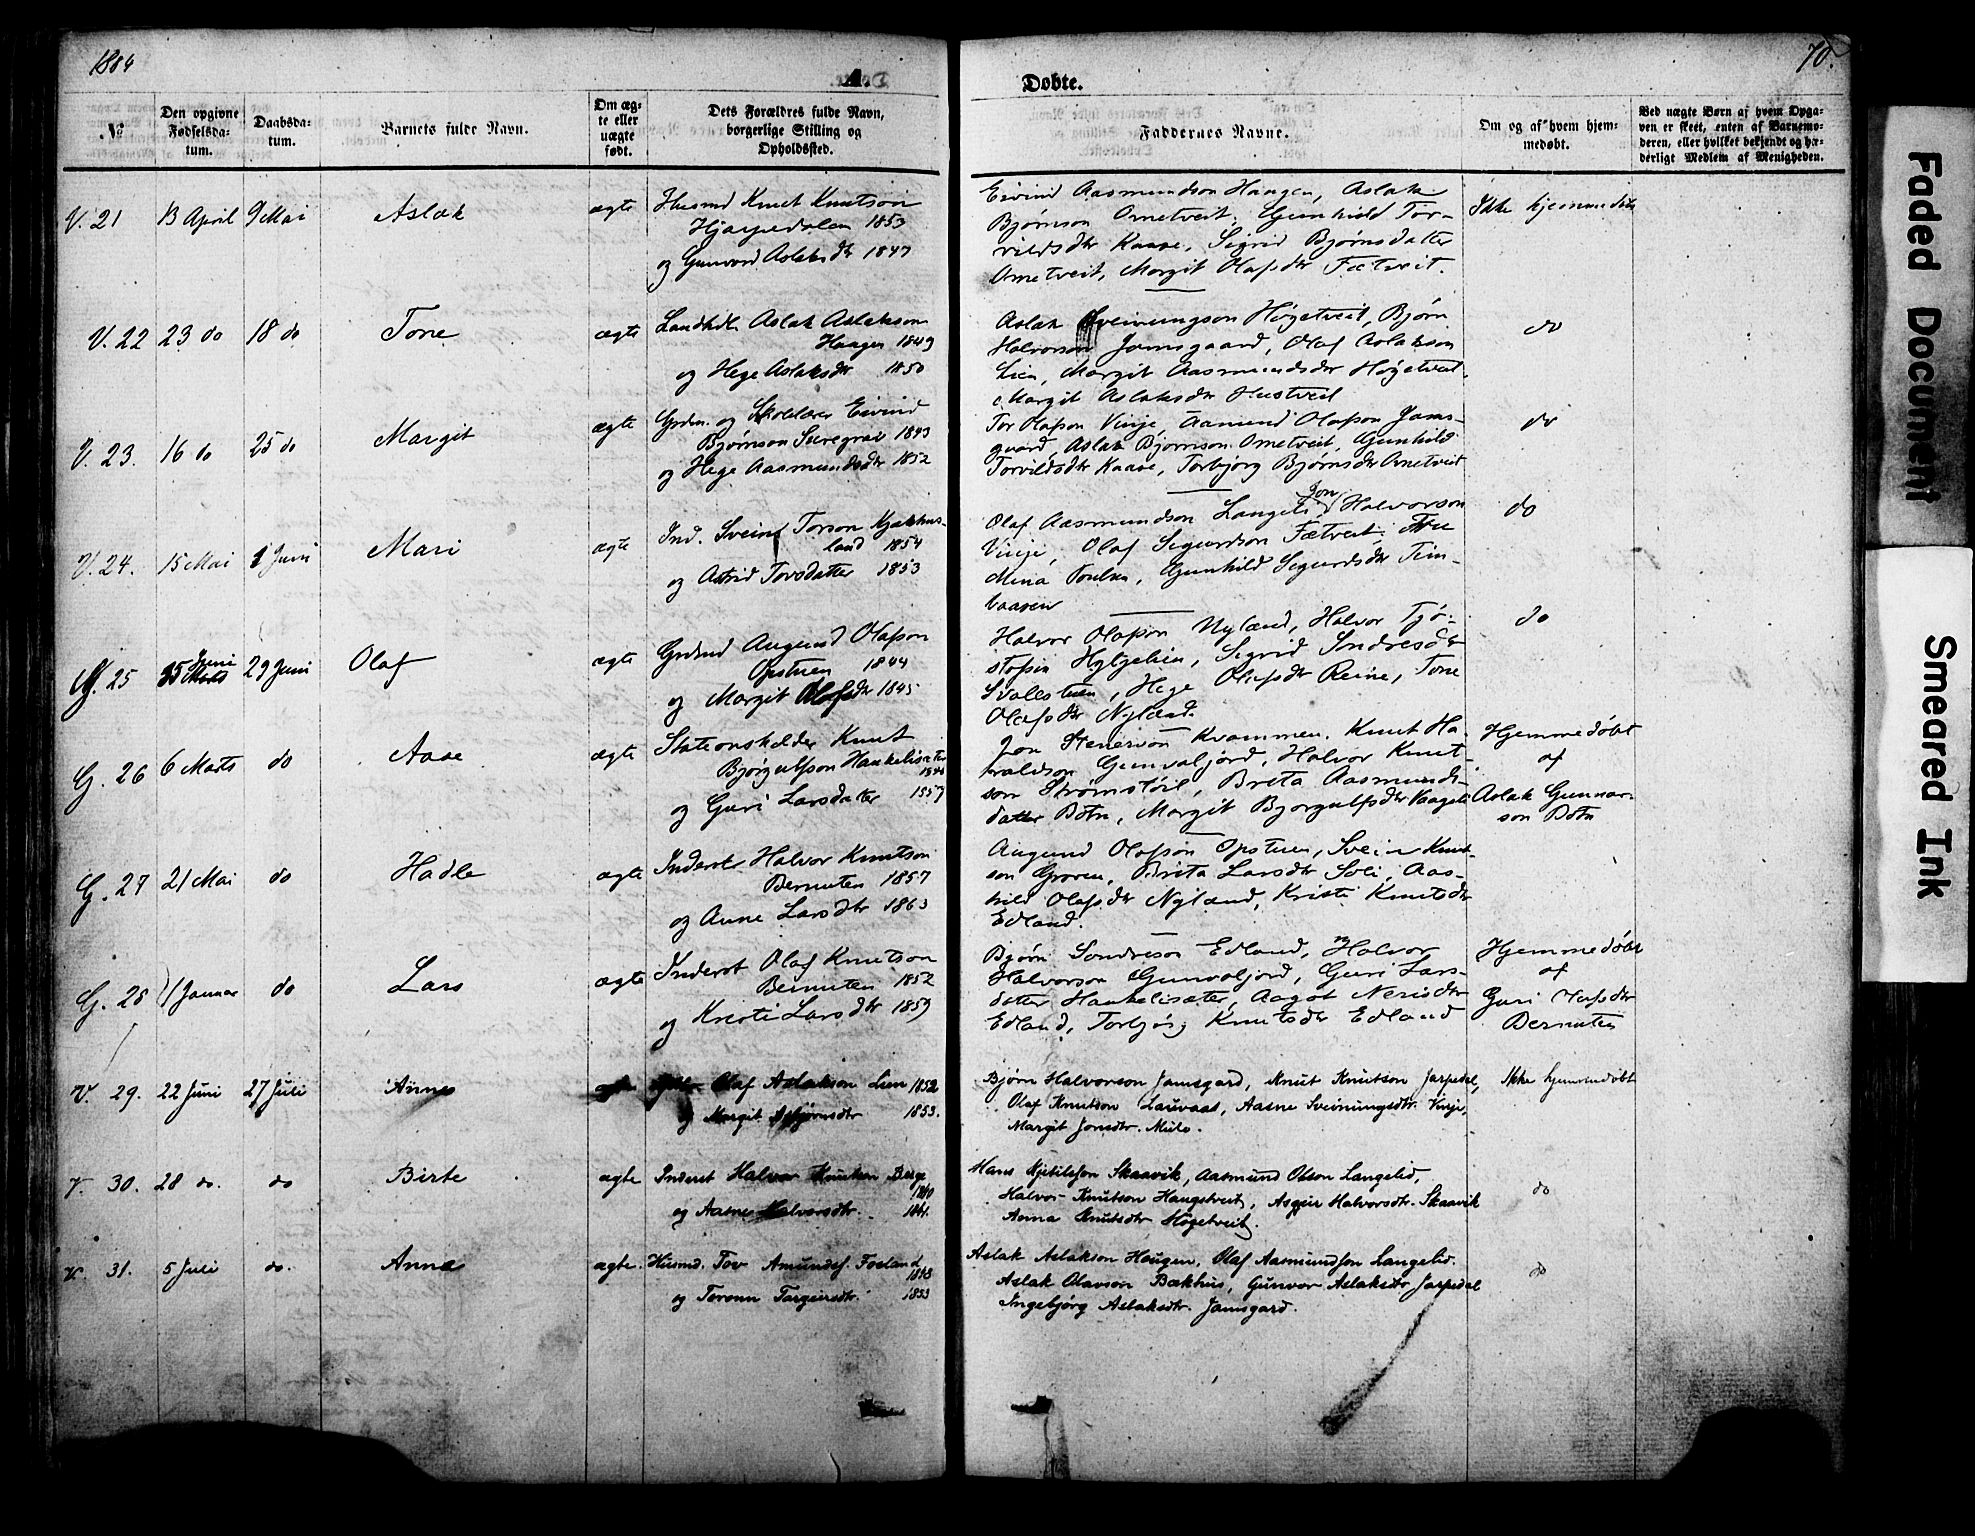 1884
70.
A.
Døbte.
No
Den opgivne Fødselsdatum.
Daabsdatum.
Barnets fulde Navn.
Om ægte eller uægte født.
Dets Forældres fulde Navn, borgerlige Stilling og Opholdssted.
Faddernes Navne.
Om og af hvem hjemmedøbt.
Ved uægte Børn af hvem Opgaven er skeet, enten af Barnemoderen, eller hvilket bekjendt og hæderligt Medlem af Menigheden.
V. 21 13 April 9 Mai Aslak ægte Husmd Knut Knutson
Hjarpedalen 1853
og Gunvord Aslaksdtr 1847
Eivind Aasmundson Haagen, Aslak
Bjørnson Ometveit, Gunhild Tor-
vildsdtr Kaase, Sigrid Bjørnsdatter
Ometveit, Margit Olafsdtr Fætveit.
Ikke hjemmedøbt
V. 22 23 do 18 do Tone ægte Landhdl. Aslak Aslakson
Haagen 1849
og Hege Aslaksdtr 1850
Aslak Sveinungson Høgetveit, Bjørn
Halvorson Jamsgaard, Olaf Aslakson
Lien, Margit Aasmundsdtr Høgetveit,
Margit Aslaksdtr Hustveit
do
V. 23. 16 do 25 do Margit ægte Grdm. og Skolelærer Eivind
Bjørnson 1843
og Hege Aasmundsdtr 1852
Tor Olafson Vinje, Aamund Olafson Jams-
gaard, Aslak Bjørnson Ometveit, Gunhild
Torvildsdtr Kaase, Torbjørg Bjørnsdtr Ometveit
do
V. 24. 15 Mai 1 Juni Mari ægte Ind. Svein Torson Kjækhus-
land 1854
og Astrid Torsdatter 1853
Olaf Aasmundson Langeli, Jon Halvorson
Vinje, Olaf Sigurdson Fætveit, Frue
Mina Poulsen, Gunhild Sigurdsdtr Tein-
baasen
do
G. 25 25 Juni Marts 29 Juni Olaf ægte Grdmd Augund Olafson
Opstuen 1844
og Margit Olafsdtr 1845
Halvor Olafson Nyland, Halvor Tjø-
stofsen Hylgelien, Sigrid Sndresdtr
Svalestuen, Hege Olafsdtr Reine, Tone
Olafsdtr Nyland.
do
G. 26 6 Marts do Aase ægte Stationsholder Knut
Bjørgulfson Haukelisæter
og Guri Larsdatter 1857
Jon Stenerson Kvammen, Knut Ha-
raldson Gunvaljord, Halvor Knut-
son Strømstøil, Breta Aasmunds-
datter Botn, Margit Bjorgulfsdtr Vaageli
Hjemmedøbt
af
Aslak Gunnar-
son Botn
G. 27 21 Mai do Hadle ægte Inderst Halvor Knutson
Bernuten 1857
og Anne Larsdtr 1863
Augund Olafson Opstuen, Svein Knut-
son Groven, Brita Larsdtr Sóli, Aas-
hild Olafsdtr Nyland, Kristi Knutsdtr
Edland.
G. 28 1 Januar do Lars ægte Inderst Olaf Knutson
Bernuten 1852
og Kristi Larsdtr 1859
Bjørn Sondreson Edland, Halvor
Halvorson Gunvaljord, Guri Lars-
datter Haukelisæter, Aagot Nerisdtr
Edland, Torbjørg Knutsdtr Edland
Hjemmedøbt
af
Guri Olafsdtr
Bernuten
V. 29. 22 Juni 27 Juli Anne ægte Olaf Aslakson Lien 1852
og Margit Asbjørnsdtr 1853.
Bjørn Halvorson Jamsgard, Knut Knutson Jarpedal,
Olaf Knutson Lauvaas, Aasne Sveinungsdtr. Vinje,
Margit Jonsdtr. Mule.
Ikke hjemmedøbt
V. 30. 28 do. do Birte ægte Inderst Halvor Knutson Berge
1860
og Aasne Halvorsdtr. 1861.
Hans Kjetilsson Skaavik, Aasmund Olsson Langelid,
Halvor Knutson Haugetveit, Asgeir Halvorsdtr. Skaavik
Anna Knutsdtr Høgetveit.
do
V. 31. 5 Juli do. Anne ægte. Husmd. Tov Amundss. Fosland
1848
og Toronn Targeirsdtr. 1853
Aslak Aslakson Haugen, Olaf Aasmundsson Langelid.
Aslak Olavson Bakhus, Gunvor Aslaksdtr Jarpedal
Ingebjørg Aslaksdtr. Jamsgard.
do
Faded Document
Smeared Ink